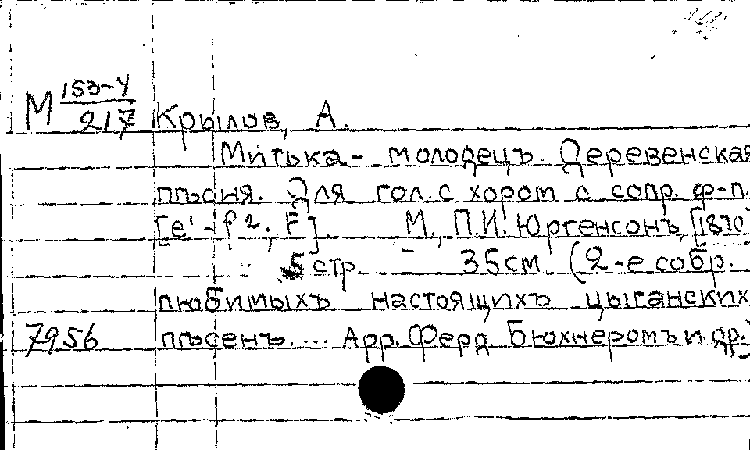 М 153-4/217 Крылов, А.
Митька - молодецъ. Деревенская
пѣсня. Для гол. с хором с сопр. ф-п.
[e¹-f²; F]. М., П.И. Юргенсонъ, [1870]
5 стр. 35см (2-е собр.
любимыхъ настоящихъ цыганских
7956 пѣсенъ.... Арр. Ферд. Бюхнеромъ и др.)